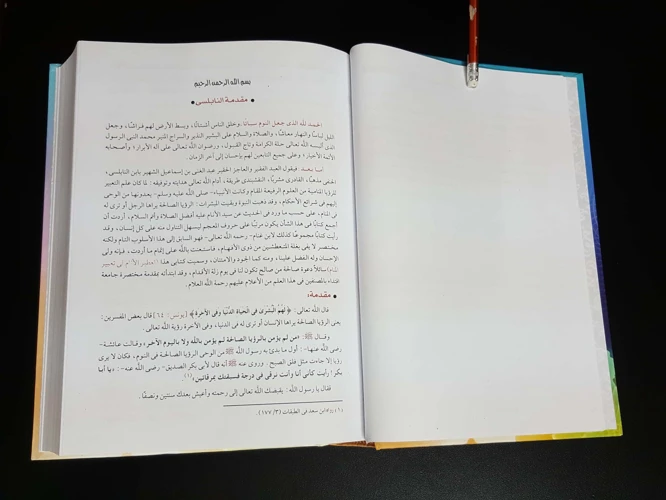 بسم الله الرحمن الرحيم
• مقدمة النابلسى •
الحمد لله الذى جعل النوم سباتًا، وخلق الناس أشتاتًا، وبسط الأرض لهم فراشًا، وجعل
الليل لباسًا والنهار معاشًا، والصلاة والسلام على البشير النذير والسراج المنير محمد النبى الرسول
الذى ألبسه الله تعالى حلة الكرامة وتاج القبول، ورضوان الله تعالى على آله الأبرار، وأصحابه
الأئمة الأخيار، وعلى جميع التابعين لهم بإحسان إلى آخر الزمان.
أما بعد. فيقول العبد الفقير والعاجز الحقير عبد الغنى بن إسماعيل الشهير بابن النابلسى،
الحنفى مذهبًا، القادرى مشربًا، النقشبندى طريقة، أدام الله تعالى هدايته وتوفيقه: لما كان علم التعبير
للرؤيا المنامية من العلوم الرفيعة المقام وكانت الأنبياء- صلى الله عليه وسلم- يعدونها من الوحى
إليهم فى شرائع الأحكام، وقد ذهبت النبوة وبقيت المبشرات: الرؤيا الصالحة يراها الرجل أو ترى له
فى المنام، على حسب ما ورد فى الحديث عن سيد الأنام عليه أفضل الصلاة وأتم السلام، أردت أن
أجمع كتابًا فى هذا الشأن يكون مرتبًا على حروف المعجم ليسهل التناول منه على كل إنسان، وقد
رأيت كتابًا مجموعًا كذلك لابن غنام- رحمه الله تعالى- فهو السابق إلى هذا الأسلوب التام ولكنه
مختصر لا يفى بغلة المتعطشين من ذوى الأفهام، فاستعنت بالله على إتمام ما أردت، فإنه ولى
الإحسان وله الفضل علينا، ومنه كما الجود والامتنان، وسميت كتابى هذا «تعطير الأنام فى تعبير
المنام» سائلاً دعوة صالحة من صالح تكون لنا فى يوم زلة الأقدام، وقد ابتدأته بمقدمة مختصرة جامعة
اقتداء بالمصنفين فى هذا العلم من الأعلام عليهم رحمة الله العلام.
• مقدمة:
قال الله تعالى: ﴿ لَهُمُ الْبُشْرَى فِى الْحَيَاةِ الدُّنْيَا وَفِى الآخِرَةِ ﴾ [يونس: ٦٤] قال بعض المفسرين:
يعنى الرؤيا الصالحة يراها الإنسان أو ترى له فى الدنيا، وفى الآخرة رؤية الله تعالى.
وقال ﷺ: «من لم يؤمن بالرؤيا الصالحة لم يؤمن بالله ولا باليوم الآخر» وقالت عائشة-
رضى الله عنها-: أول ما بدئ به رسول الله ﷺ من الوحى الرؤيا الصالحة فى النوم، فكان لا يرى
رؤيا إلا جاءت مثل فلق الصبح. وروى عنه ﷺ أنه قال لأبى بكر الصديق- رضى الله عنه-: «يا أبا
بكر! رأيت كأنى أنا وأنت نرقى فى درجة فسبقتك بمرقاتين»(١).
فقال يا رسول الله: يقبضك الله تعالى إلى رحمته وأعيش بعدك سنتين ونصفًا.
(١) رواه ابن سعد فى الطبقات (٣/ ١٧٧).